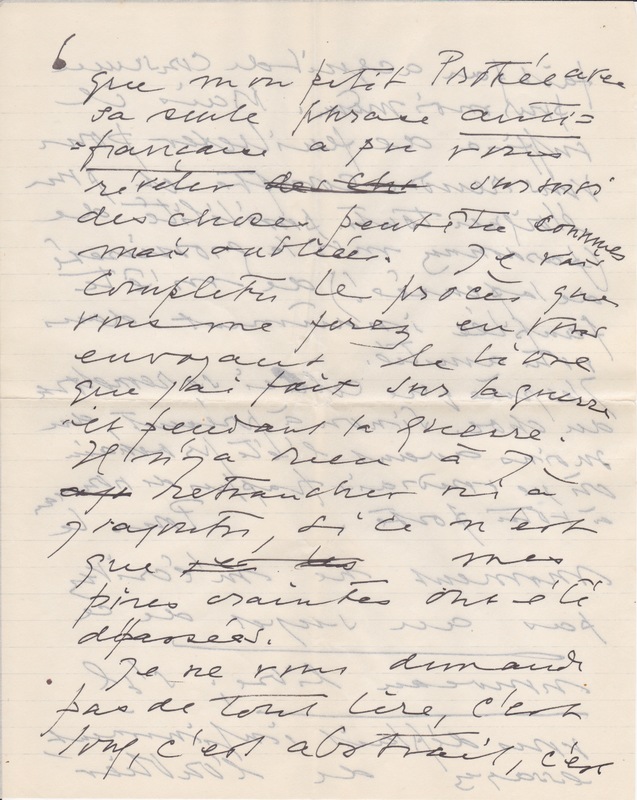 6
que mon petit Protée avec
sa seule phrase anti=
=française a pu vous
révéler des cho sur moi
des choses peut être connues
mais oubliées. Je vais
completer le procès que
vous me ferez en vous
envoyant le livre
que j'ai fait sur la guerre
et pendant la guerre.
Il n'y a rien à y
retrancher ni à
rajouter, si ce n'est
que mes
pires craintes ont été
dépassées.
Je ne vous demande
pas de tout lire, c'est
long, c'est abstrait, c'est